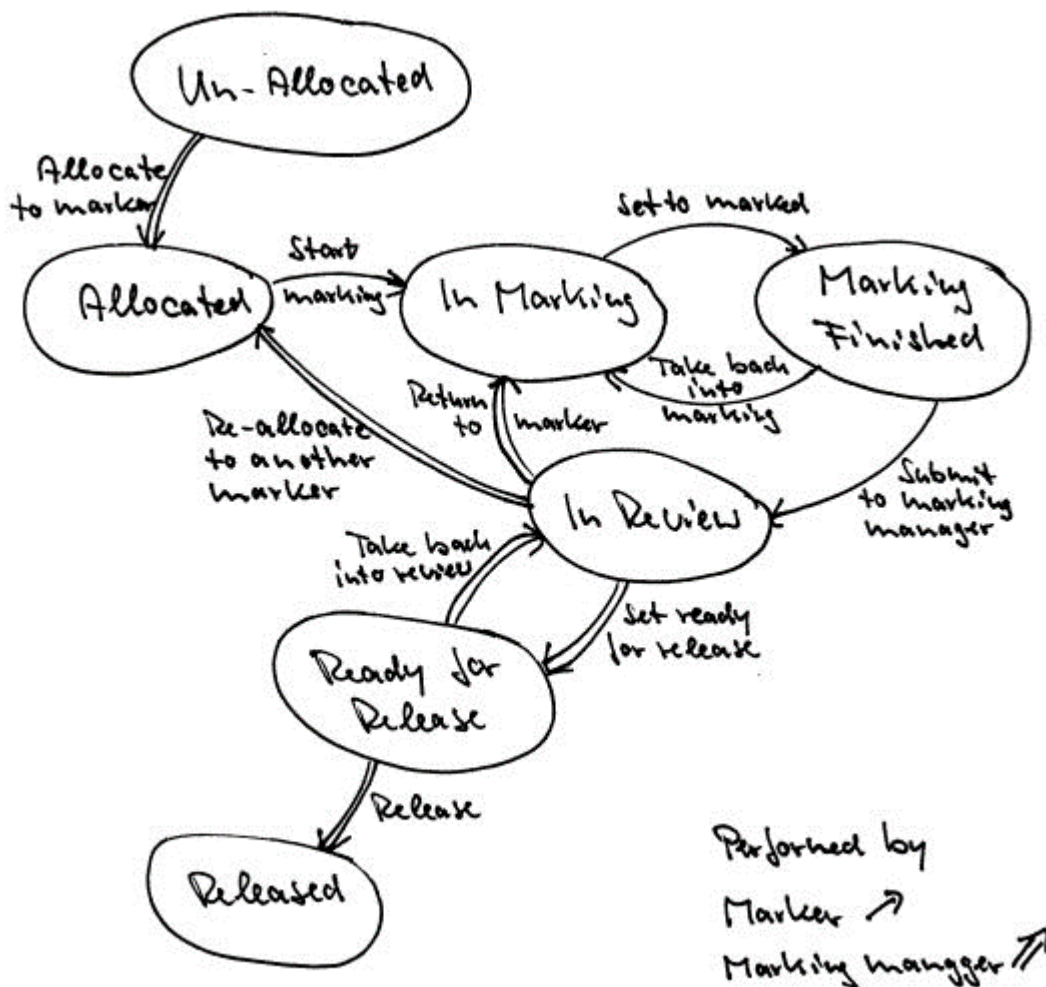 Un-Allocated
Allocate
to marker
Allocated
Start
marking
In Marking
Set to marked
Marking
Finished
Take back
into
marking
Return
to marker
Re-allocate
to another
marker
Submit
to marking
manager
In Review
Take back
into review
Set ready
for release
Ready for
Release
Release
Released
Performed by
Marker
Marking mangger